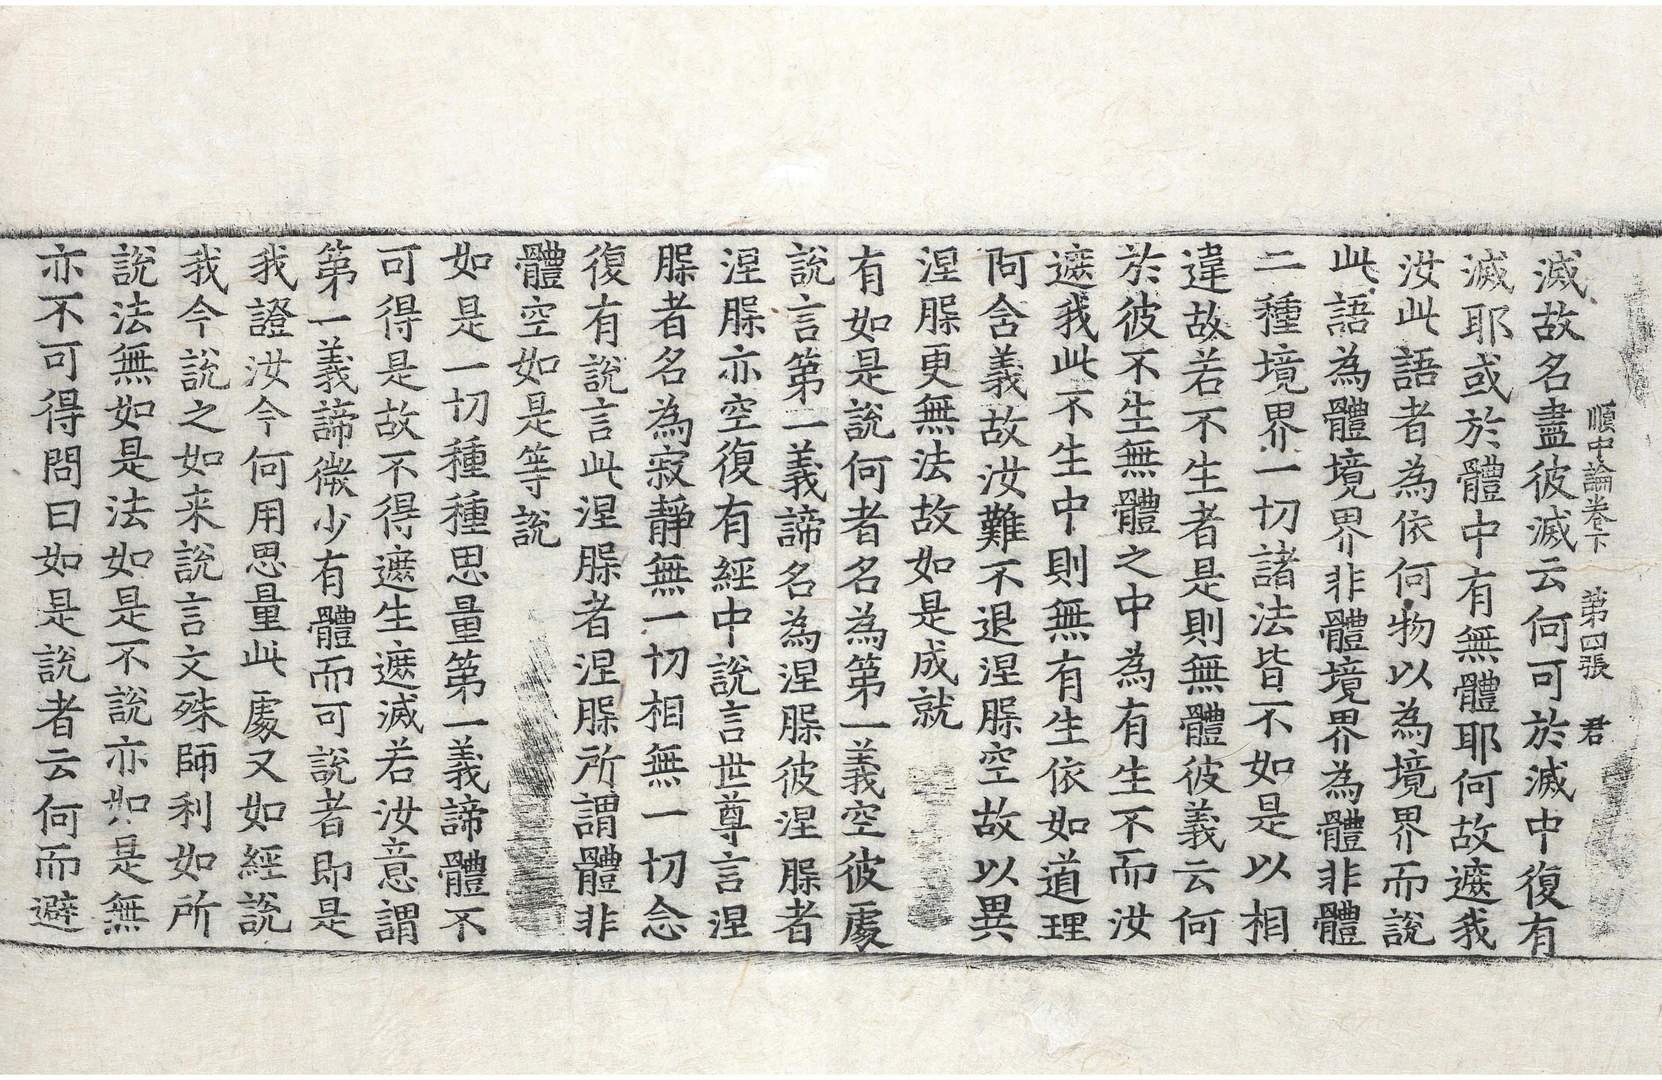 順中論卷下 第四張 君
滅故名盡彼滅云何可於滅中復有
滅耶或於體中有無體耶何故遮我
汝此語者為依何物以為境界而說
此語為體境界非體境界為體非體
二種境界一切諸法皆不如是以相
違故若不生者是則無體彼義云何
於彼不生無體之中為有生不而汝
遮我此不生中則無有生依如道理
阿含義故汝難不退涅槃空故以異
涅槃更無法故如是成就
有如是說何者名為第一義空彼處
說言第一義諦名為涅槃彼涅槃者
涅槃亦空復有經中說言世尊言涅
槃者名為寂靜無一切相無一切念
復有說言此涅槃者涅槃所謂體非
體空如是等說
如是一切種種思量第一義諦體不
可得是故不得遮生遮滅若汝意謂
第一義諦微少有體而可說者即是
我證汝今何用思量此處又如經說
我今說之如来說言文殊師利如所
說法無如是法如是不說亦如是無
亦不可得問曰如是說者云何而避